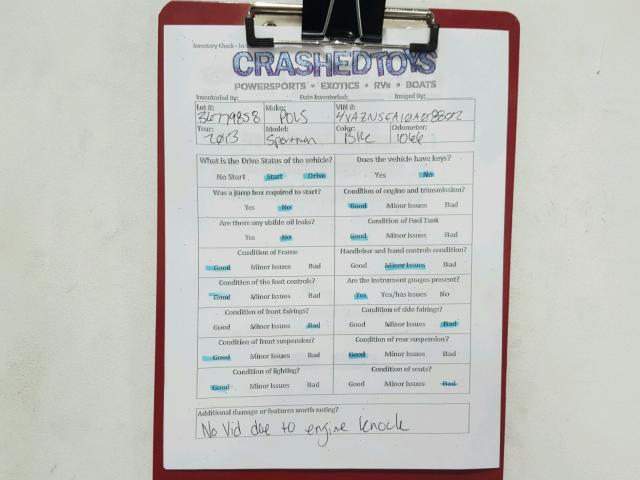 Inventory Check - In
CRASHEDTOYS
POWERSPORTS • EXOTICS • RVs • BOATS
Inventoried By: Date Inventoried: Imaged By:
Lot #: Make: VIN #:
36779858 POLS
Year: Model: Color: Odometer:
2013 Sportman Blk 1066
What is the Drive Status of the vehicle? Does the vehicle have keys?
No Start Start Drive Yes No
Was a jump box required to start? Condition of engine and transmission?
Yes No Good Minor Issues Bad
Are there any visible oil leaks? Condition of Fuel Tank
Yes No Good Minor Issues Bad
Condition of Frame Handlebar and hand controls condition?
Good Minor Issues Bad Good Minor Issues Bad
Condition of the foot controls? Are the instrument guages present?
Good Minor Issues Bad Yes Yes/has issues No
Condition of front fairings? Condition of side fairings?
Good Minor Issues Bad Good Minor Issues Bad
Condition of front suspension? Condition of rear suspension?
Good Minor Issues Bad Good Minor Issues Bad
Condition of lighting? Condition of seats?
Good Minor Issues Bad Good Minor Issues Bad
Additional damage or features worth noting?
No Vid due to engine knock